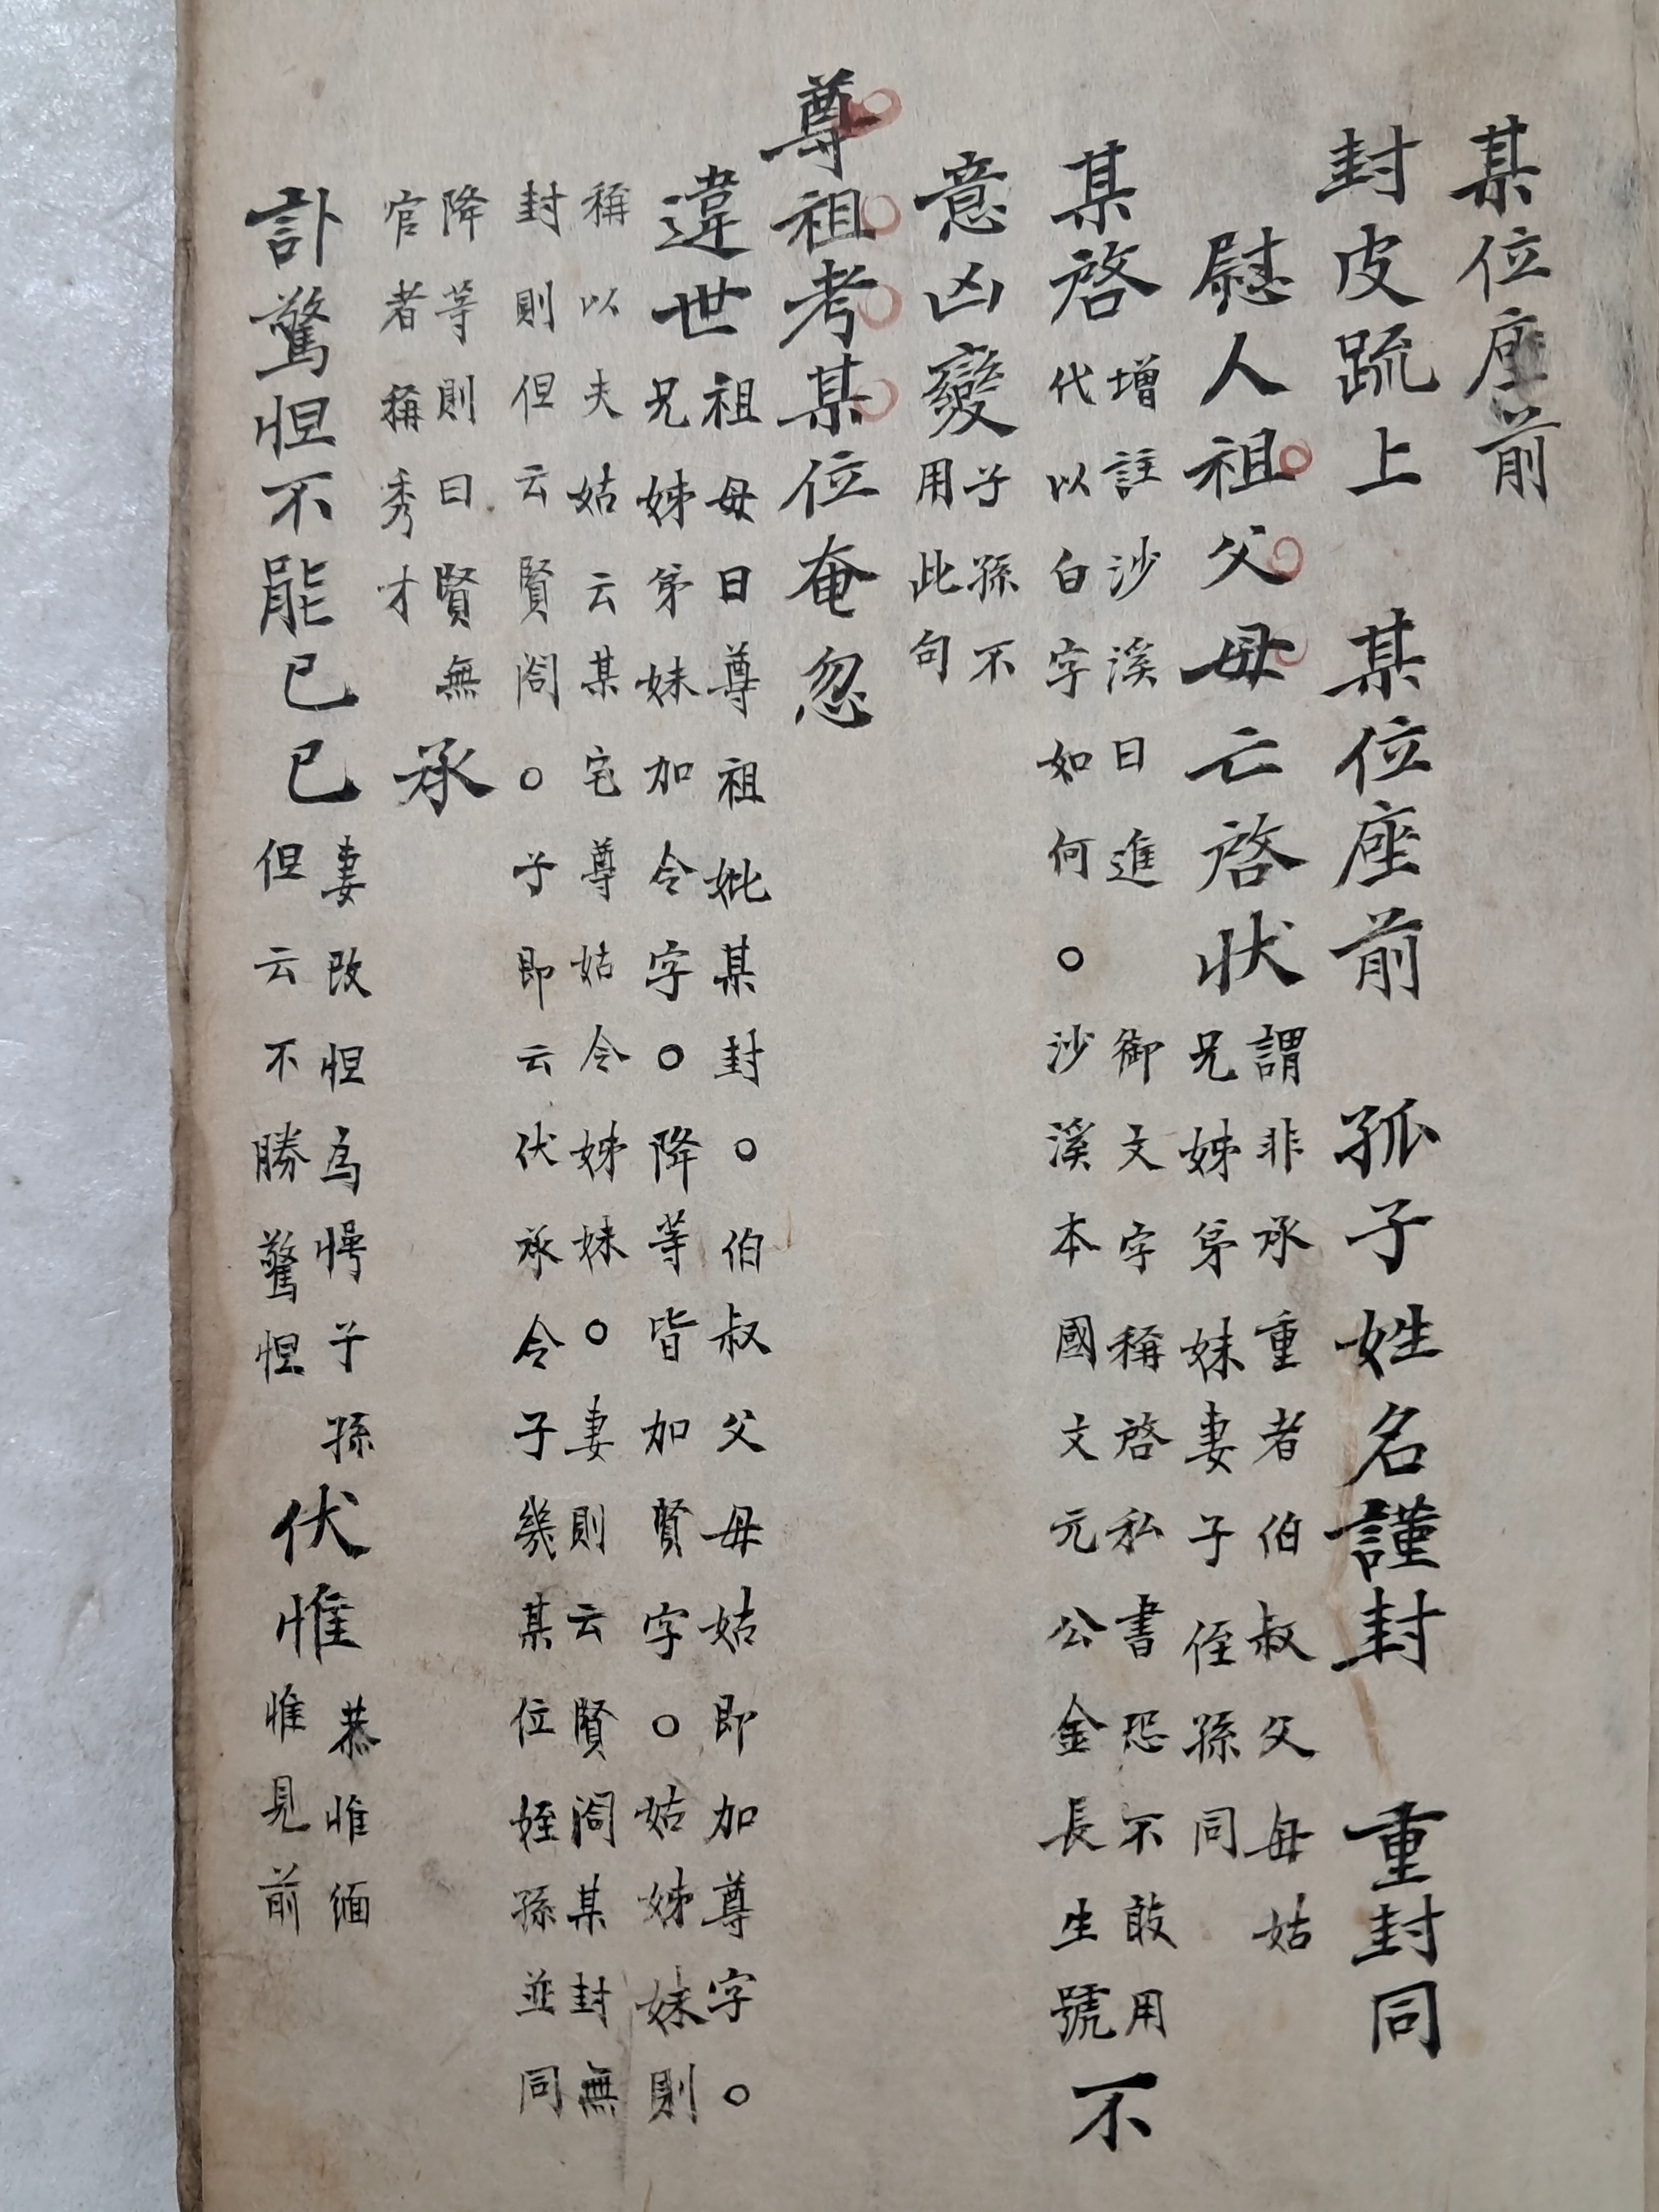 某位座前
封皮䟽上 某位座前 孤子姓名謹封 重封同
慰人祖父母亡啓状
謂非承重者伯叔父母姑
兄姊弟妹妻子侄孫同
某啓
增註沙溪曰進御文字稱啓私書恐不敢用
代以白字如何○沙溪本國文元公金長生號
不
意凶變
子孫不
用此句
尊祖考某位奄忽
違世
祖母曰尊祖妣某封○伯叔父母姑即加尊字○
兄姊弟妹加令字○降等皆加賢字○姑姊妹則
稱以夫姑云某宅尊姑令姊妹○妻則云賢閤某封無
封則但云賢閤○子即云伏承令子幾某位姪孫並同
降等則曰賢無
官者稱秀才
承
訃驚怛不能已已
妻改怛爲愕子孫
但云不勝驚怛
伏惟
恭惟緬
惟見前